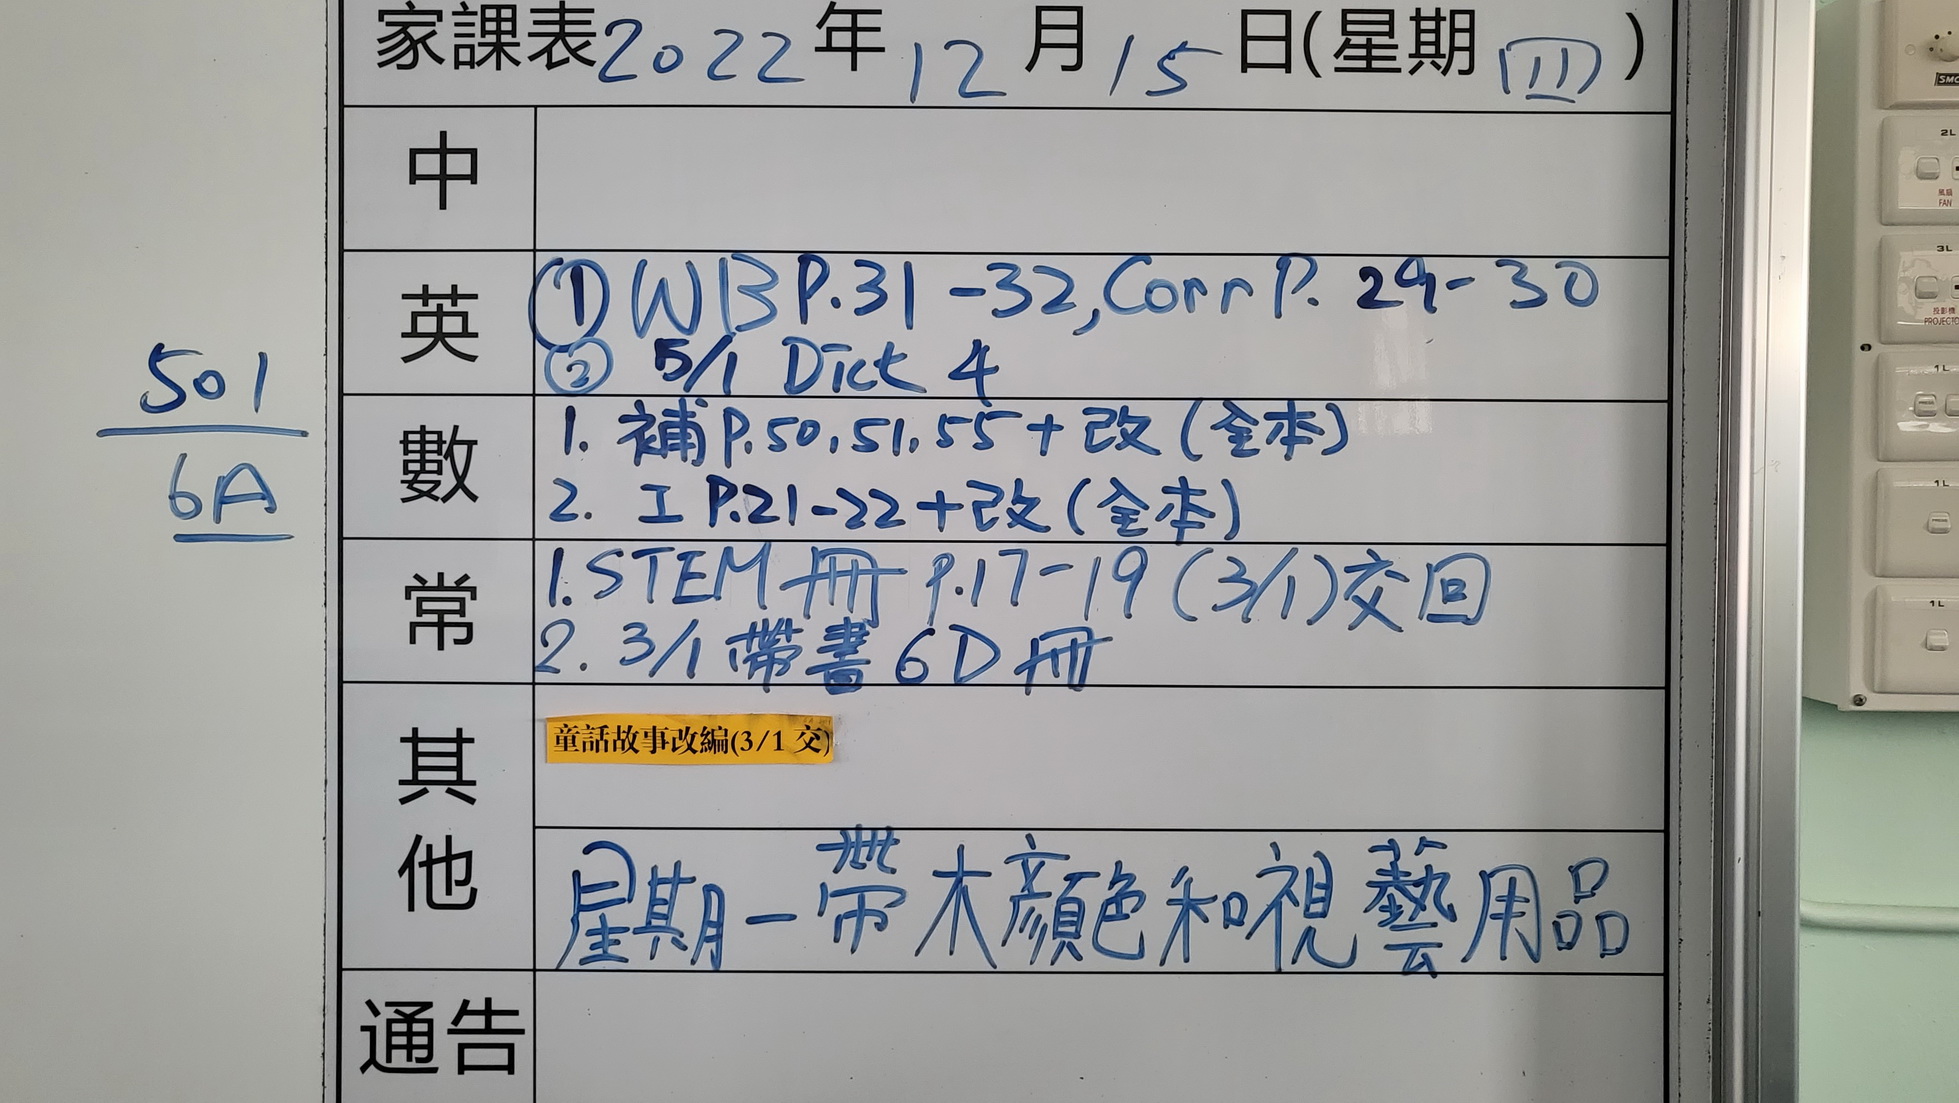 家課表2022年12月15日(星期四)
中
英
① WB P.31-32, Corr P. 29-30
② 5/1 Dict 4
數
1. 補 P.50, 51, 55 + 改 (全本)
2. 工 P.21-22 + 改 (全本)
常
1. STEM 冊 P.17-19 (3/1) 交回
2. 3/1 帶書 6D 冊
其他
童話故事改編(3/1 交)
星期一帶木顏色和視藝用品
通告
501
6A
2L
風扇
FAN
3L
投影機
1L
1L
1L